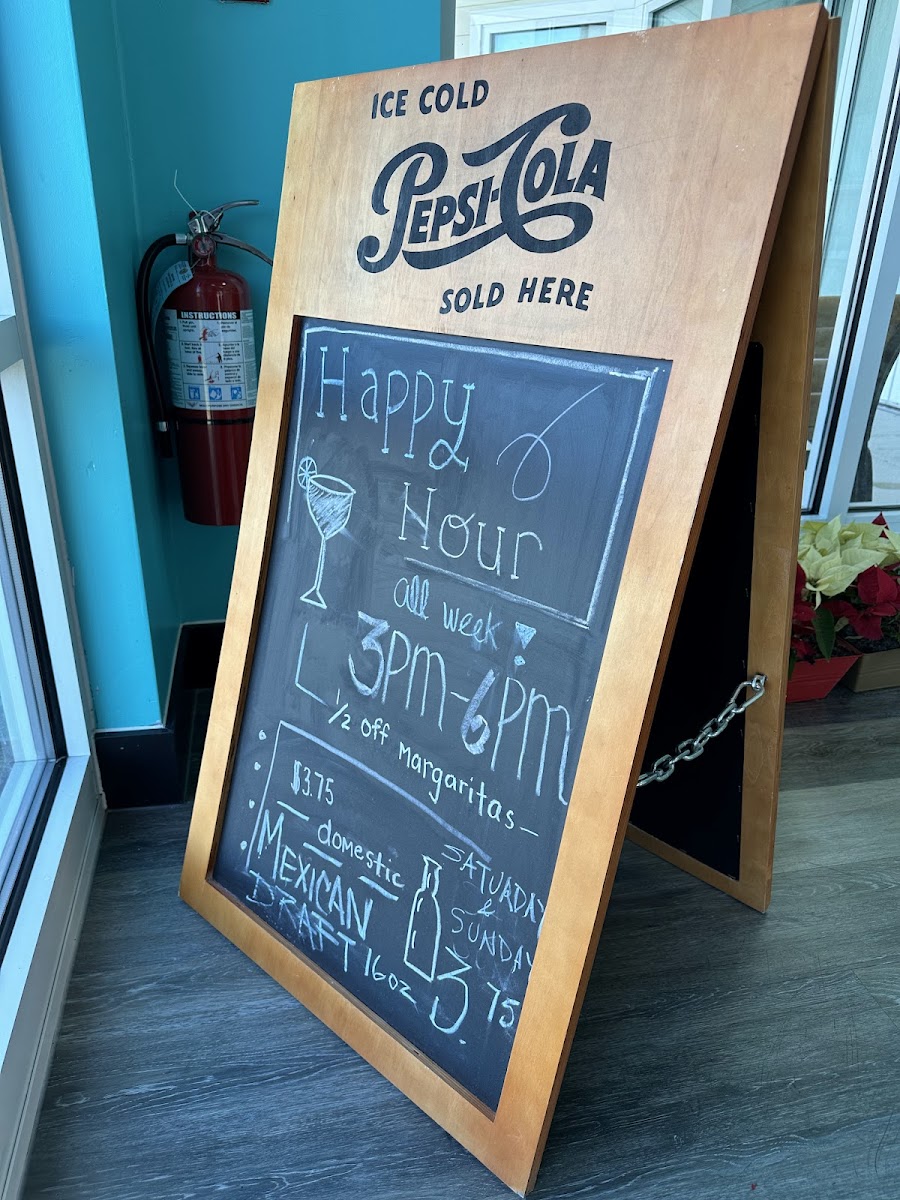 ICE COLD
PEPSI-COLA
SOLD HERE
INSTRUCTIONS
Happy
Hour
all week
3pm-6pm
1/2 off margaritas-
$3.75
domestic
MEXICAN
DRAFT 16oz
SATUADAY
&
SUNDAY
3.75